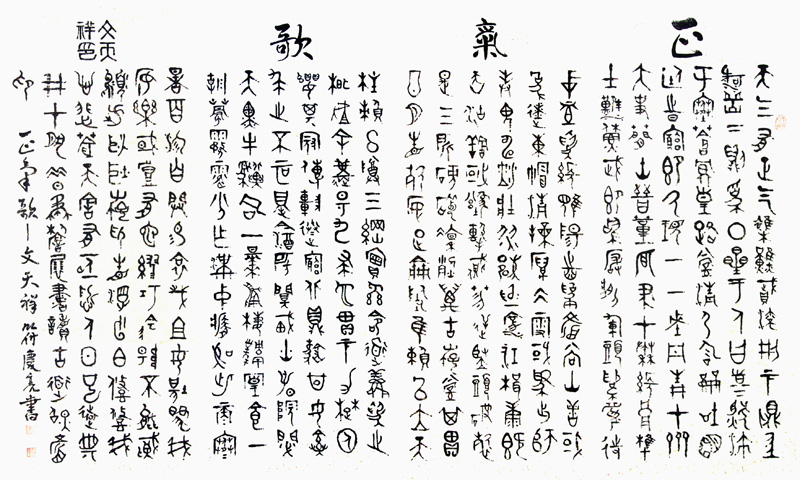 正氣歌
文天祥句
天地有正氣雜然賦流形下則為
河嶽上則為日星於人曰浩然沛
乎塞蒼冥皇路當清夷含和吐明
庭時窮節乃見一一垂丹青在齊
太史簡在晉董狐筆在秦張良椎在
漢蘇武節為嚴將軍頭為嵇侍
中血為張睢陽齒為顏常山舌或
為遼東帽清操厲冰雪或為出師
表鬼神泣壯烈或為渡江楫慷慨
吞胡羯或為擊賊笏逆豎頭破裂
是氣所磅礴凜烈萬古存當其貫
日月生死安足論地維賴以立天
柱賴以尊三綱實繫命道義為之
根嗟予遘陽九隸也實不力楚囚
纓其冠傳車送窮北鼎鑊甘如飴
求之不可得陰房闃鬼火春院閟
天黑牛驥同一皂雞棲鳳凰食一
朝蒙霧露分作溝中瘠如此再寒
暑百沴自辟易嗟哉沮洳場為我
安樂國豈有他繆巧陰陽不能賊
顧此耿耿在仰視浮雲白悠悠我
心悲蒼天曷有極哲人日已遠典
刑在夙昔風簷展書讀古道照顏
色 正氣歌 文天祥 符慶亮書